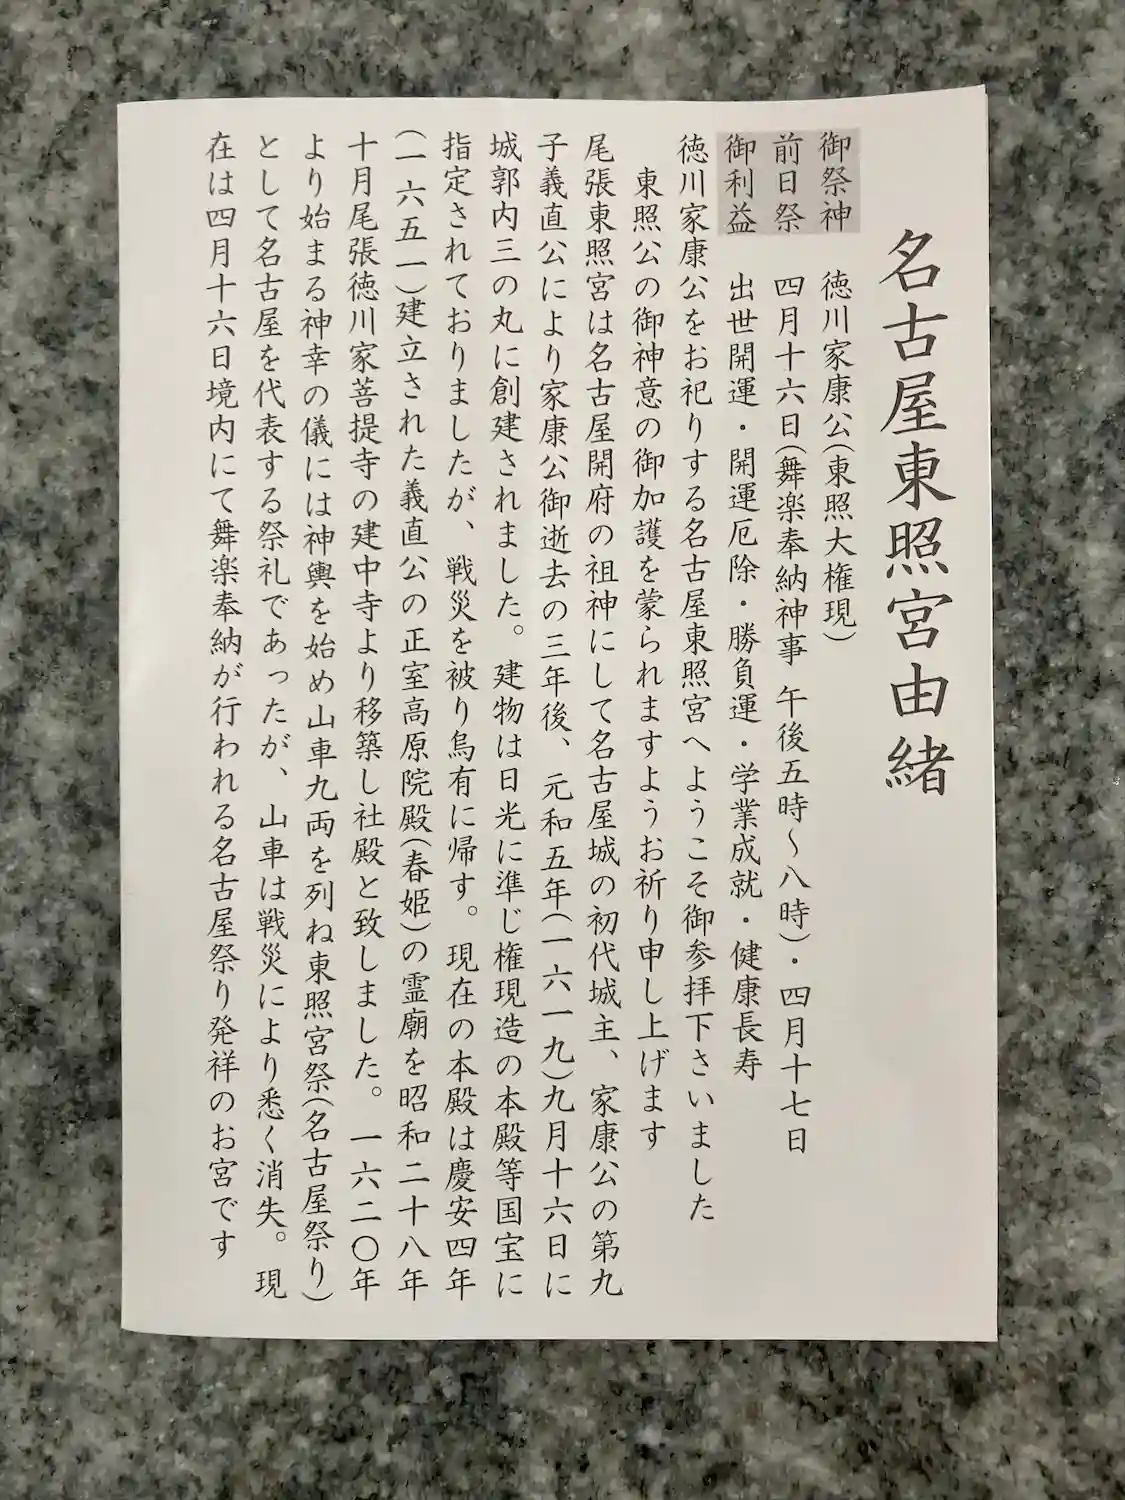 名古屋東照宮由緒
御祭神 徳川家康公(東照大権現)
前日祭 四月十六日(舞楽奉納神事 午後五時～八時)・四月十七日
御利益 出世開運・開運厄除・勝負運・学業成就・健康長寿
徳川家康公をお祀りする名古屋東照宮へようこそ御参拝下さいました
東照公の御神意の御加護を蒙られますようお祈り申し上げます
尾張東照宮は名古屋開府の祖神にして名古屋城の初代城主、家康公の第九
子義直公により家康公御逝去の三年後、元和五年(一六一九)九月十六日に
城郭内三の丸に創建されました。建物は日光に準じ権現造の本殿等国宝に
指定されておりましたが、戦災を被り烏有に帰す。現在の本殿は慶安四年
(一六五一)建立された義直公の正室高原院殿(春姫)の霊廟を昭和二十八年
十月尾張徳川家菩提寺の建中寺より移築し社殿と致しました。一六二〇年
より始まる神幸の儀には神輿を始め山車九両を列ね東照宮祭(名古屋祭り)
として名古屋を代表する祭礼であったが、山車は戦災により悉く消失。現
在は四月十六日境内にて舞楽奉納が行われる名古屋祭り発祥のお宮です